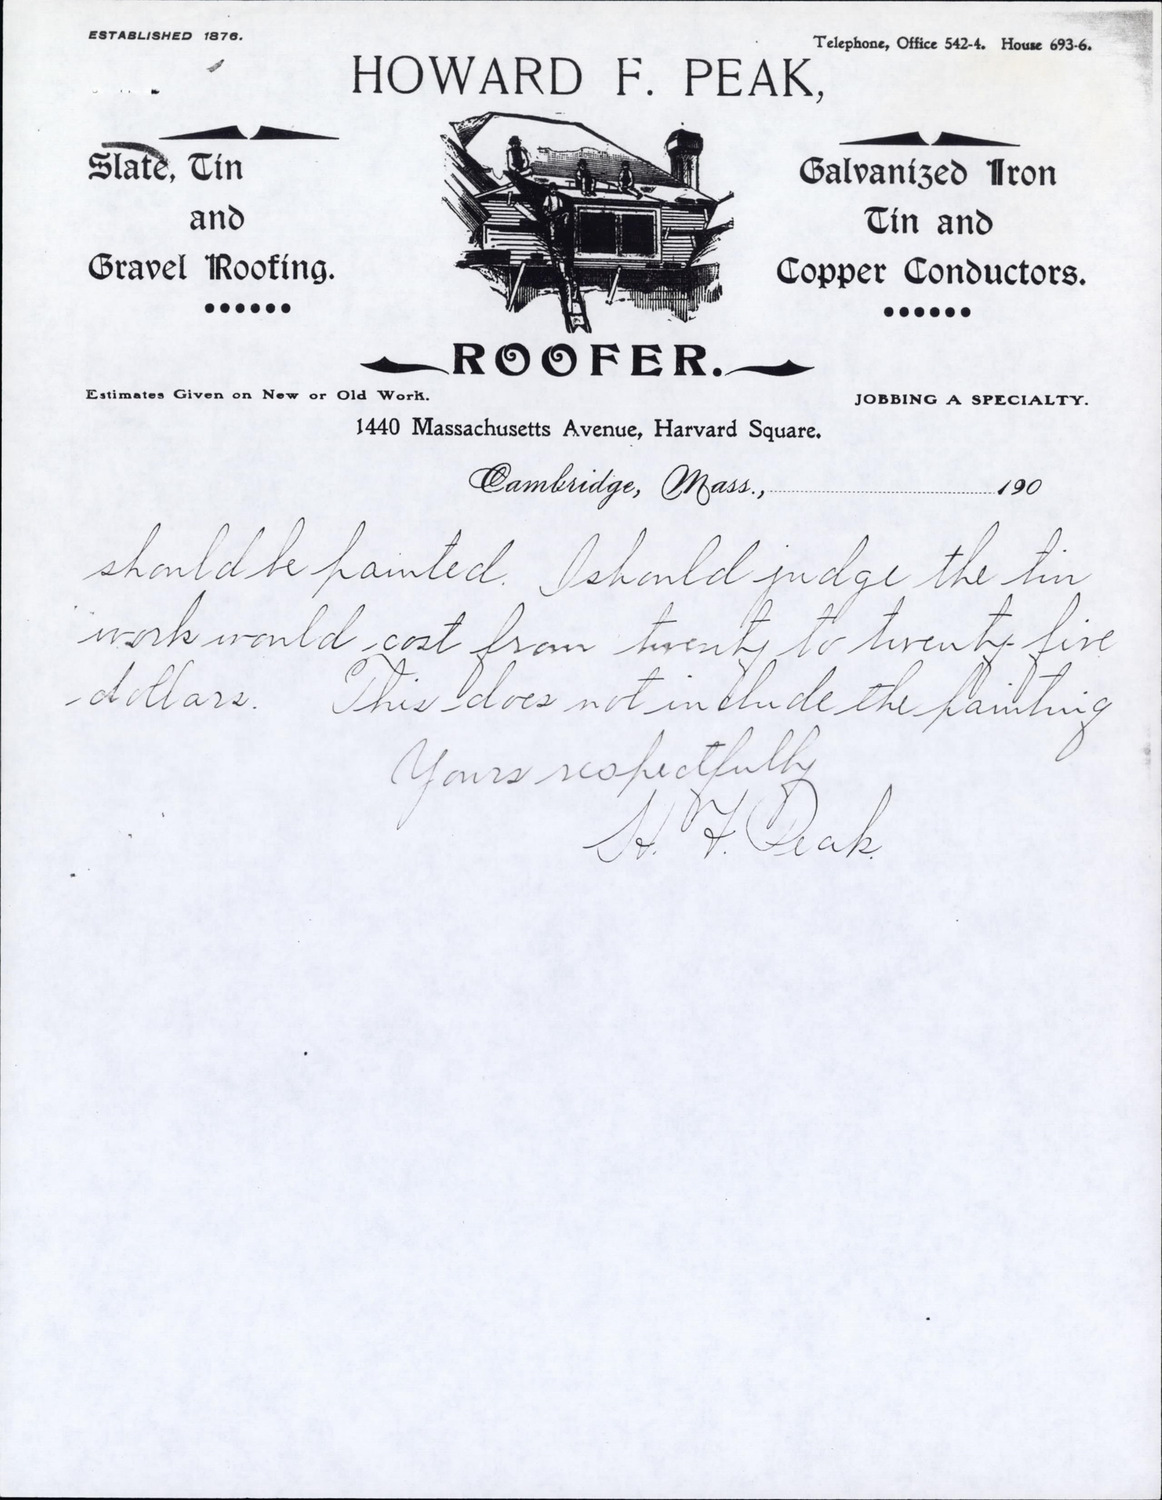 ESTABLISHED 1876.
Telephone, Office 542-4. House 693-6.
HOWARD F. PEAK,
Slate, Tin
and
Gravel Roofing.
Galvanized Iron
Tin and
Copper Conductors.
ROOFER.
Estimates Given on New or Old Work.
JOBBING A SPECIALTY.
1440 Massachusetts Avenue, Harvard Square.
Cambridge, Mass., 190
should be painted. I should judge the tin
work would cost from twenty to twenty-five
dollars. This does not include the painting
Yours respectfully
H. F. Peak.